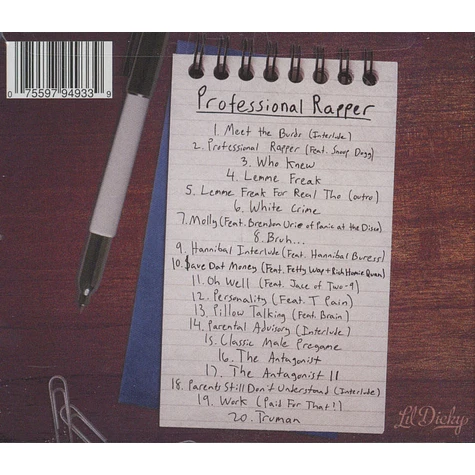 0 75597 94933 9
Professional Rapper
1. Meet the Burds (Interlude)
2. Professional Rapper (Feat. Snoop Dogg)
3. Who Knew
4. Lemme Freak
5. Lemme Freak For Real Tho (outro)
6. White Crime
7. Molly (Feat. Brendon Urie of Panic at the Disco)
8. Bruh...
9. Hannibal Interlude (Feat. Hannibal Buress)
10. $ave Dat Money (Feat. Fetty Wap + Rich Homie Quan)
11. Oh Well (Feat. Jace of Two-9)
12. Personality (Feat. T Pain)
13. Pillow Talking (Feat. Brain)
14. Parental Advisory (Interlude)
15. Classic Male Pregame
16. The Antagonist
17. The Antagonist II
18. Parents Still Don't Understand (Interlude)
19. Work (Paid For That?)
20. Truman
Lil Dicky